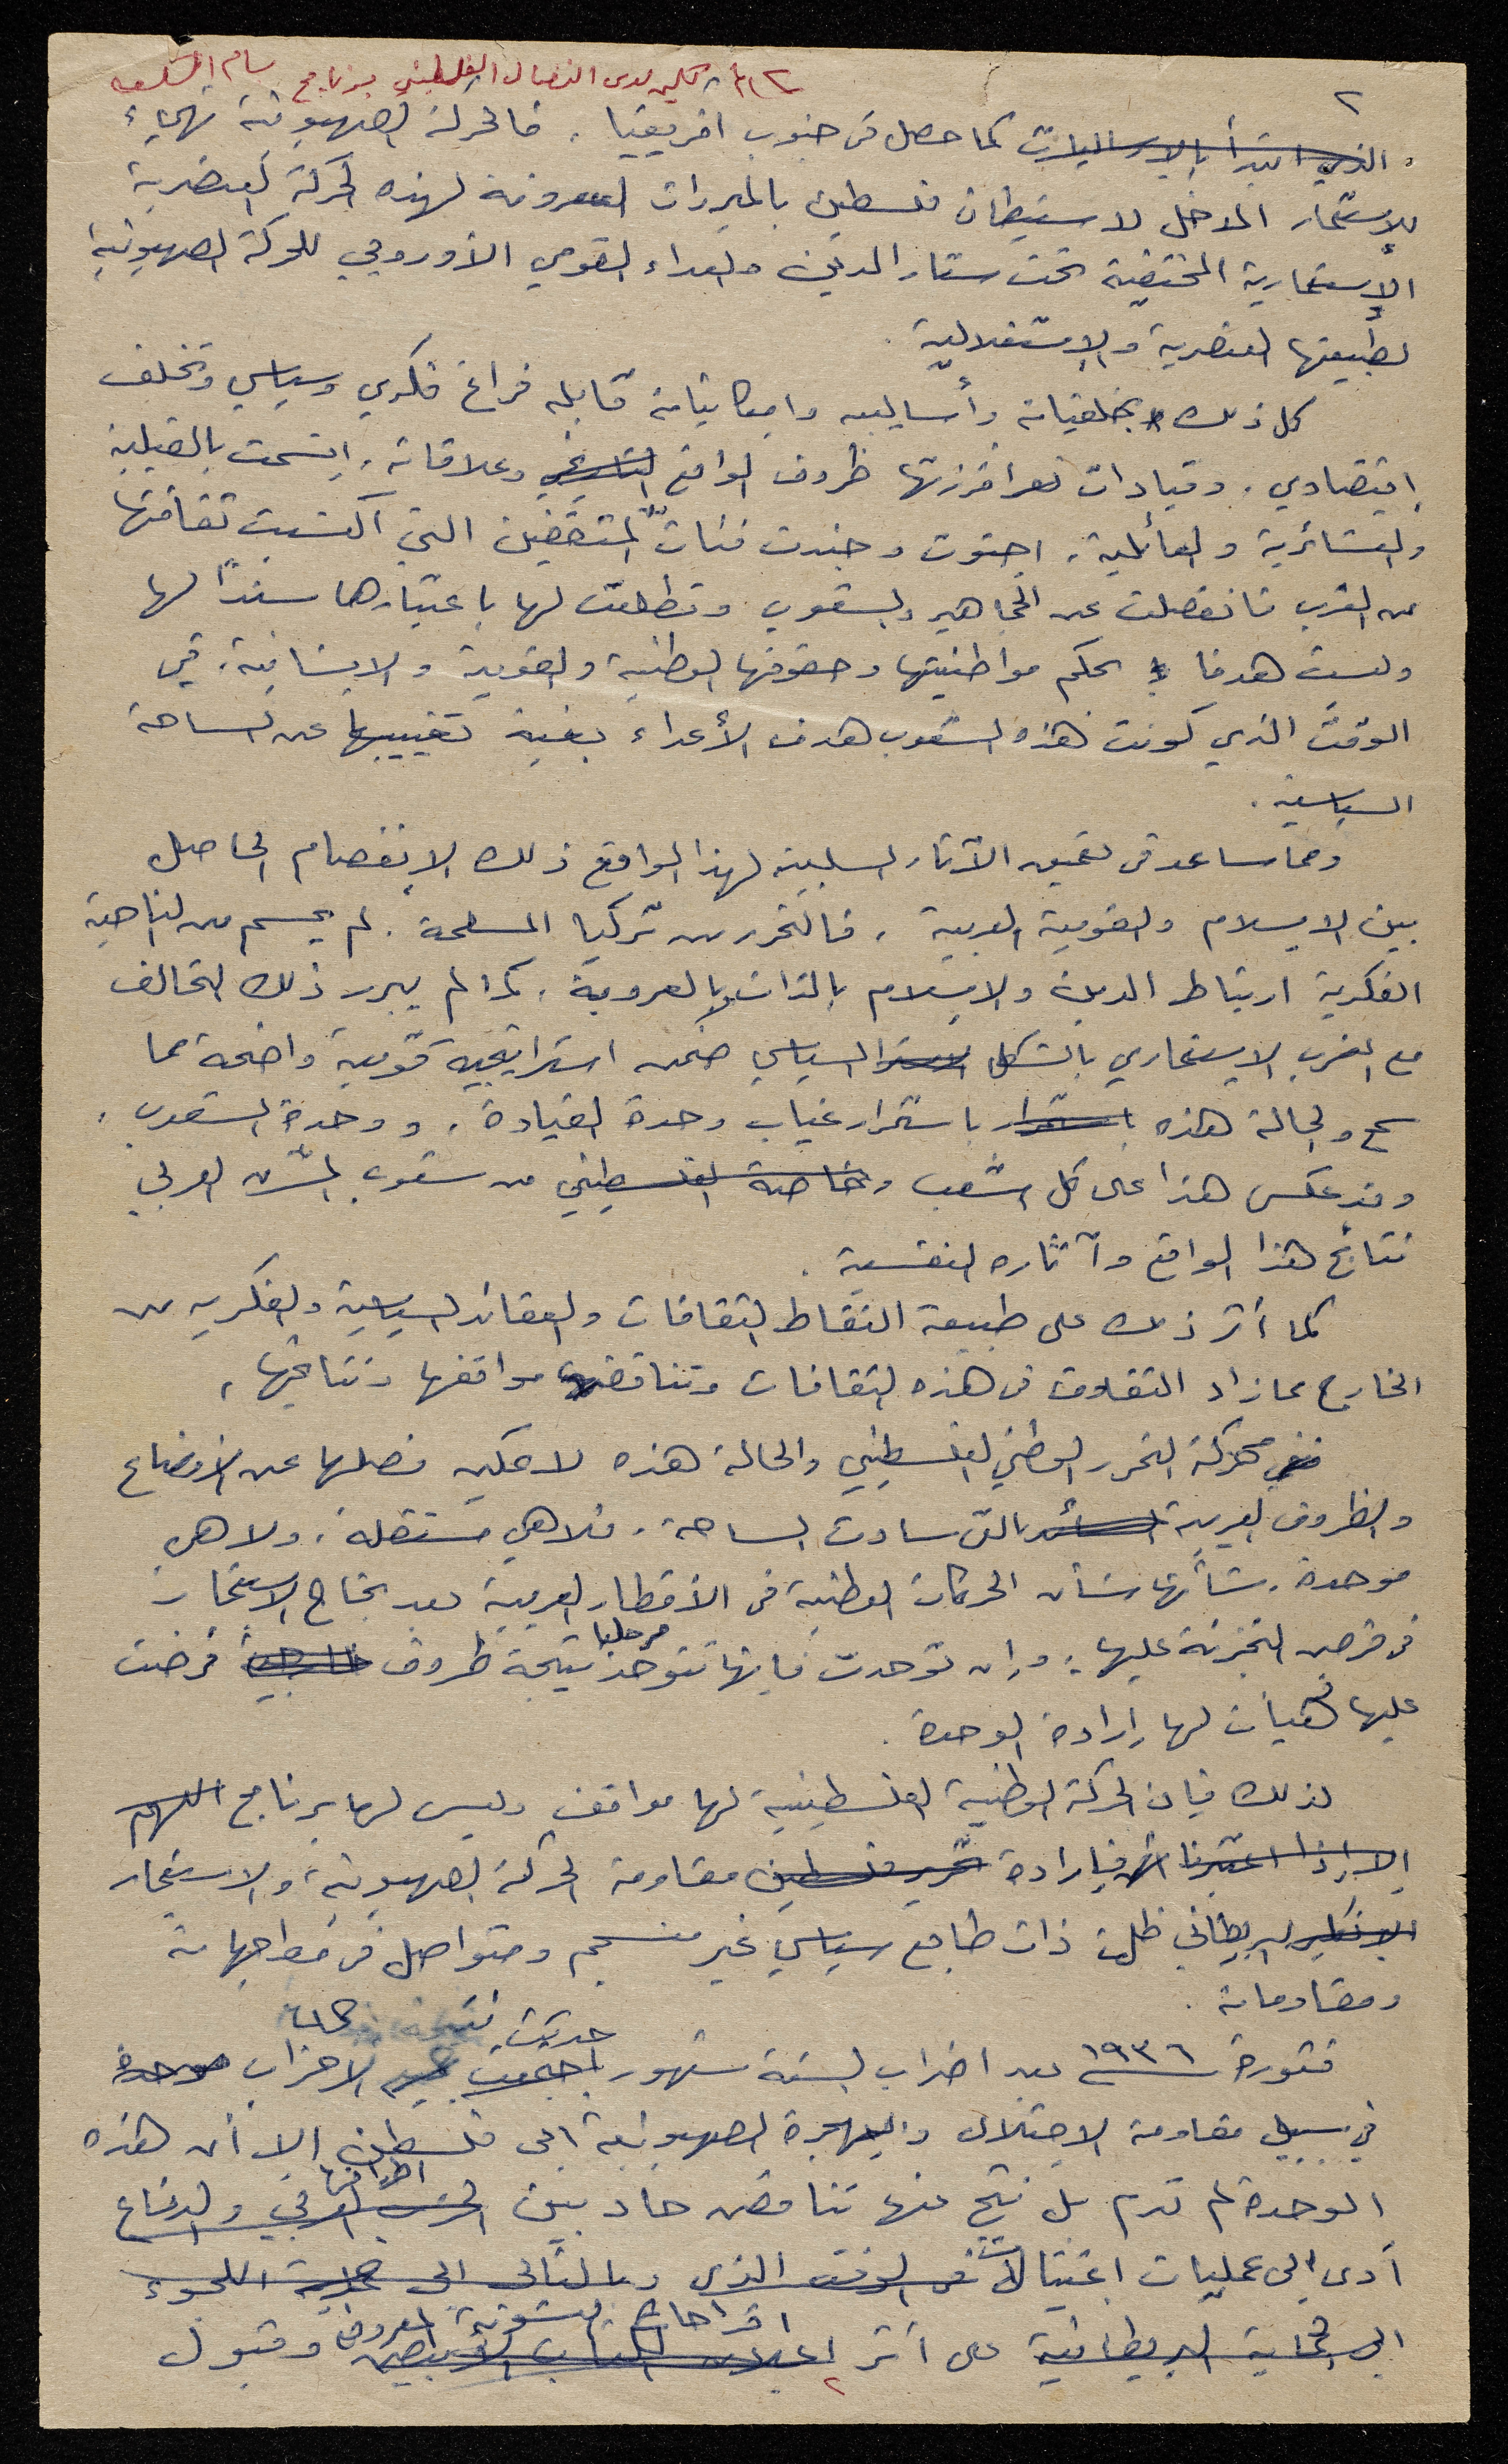 ٢
لدى النضال الفلسطيني برنامج
الذي ابتدأ بالارساليات كما حصل في جنوب افريقيا. فالحركة الصهيونية تهيء
للإستعمار المدخل لاستيطان فلسطين بالمبررات المعروفة لهذه الحركة العنصرية
الإستعمارية المختفية تحت ستار الدين والعداء القومي الأوروبي للحركة الصهيونية
لطبيعتها العنصرية والإستغلالية.
كل ذلك بخلفياته وأساليبه وامكانياته قابله فراغ فكري وسياسي وتخلف
إقتصادي. وقيادات افرزتها ظروف الواقع وعلاقاته، اتسمت بالقبلية
والعشائرية والعائلية. احتوت وجندت فئات المثقفين التي اكتسبت ثقافتها
من الغرب فانفصلت عن الجماهير والشعوب وتطلعت لها باعتبارها سندًا لها
وليست هدفا بحكم مواطنيتها وحقوقها الوطنية والقومية والانسانية، في
الوقت الذي كونت هذه الشعوب هدف الأعداء بغية تغييبها عن الساحة
السياسية.
ومما ساعد في تعميق الآثار السلبية لهذا الواقع ذلك الإنفصام الحاصل
بين الإسلام والقومية العربية. فالتحرر من تركيا المسلمة. لم يحسم من الناحية
الفكرية ارتباط الدين والإسلام بالذات بالعروبة. كما لم يبرر ذلك التحالف
مع الغرب الاستعماري بالشكل السياسي ضمن استراتيجية قومية واضحة مما
سمح والحالة هذه باستمرار غياب وحدة القيادة، ووحدة الشعوب.
وقد عكس هذا على كل الشعب وخاصة الفلسطيني من شعوب المشرق العربي
نتائج هذا الواقع وآثاره النفسية.
كما أثر ذلك على طبيعة التقاط الثقافات والعقائد السياسية والفكرية من
الخارج مما زاد التفاوت في هذه الثقافات وتناقض مواقفها ونتائجها،
فحركة التحرر الوطني الفلسطيني والحالة هذه لا يمكن فصلها عن الأوضاع
والظروف العربية التي سادت الساحة. فلا هي مستقلة. ولا هي
موحدة. شأنها شأن الحركات الوطنية في الأقطار العربية بعد نجاح الاستعمار
في فرض التجزئة عليها. وإن توحدت فإنها تتوحد مرحليا نتيجة ظروف خارجية فرضت
عليها فهيأت لها إرادة الوحدة.
لذلك فإن الحركة الوطنية الفلسطينية لها مواقف وليس لها برنامج اللهم
إلا إذا اعتبرنا ارادة تحرير فلسطين مقاومة الحركة الصهيونية، والاستعمار
البريطاني ظلت ذات طابع سياسي غير منسجم ومتواصل في مواجهاته
ومقاوماته.
حدثت نتيجة
فثورة ١٩٣٦ بعد اضراب الستة شهور اجتمعت الاحزاب موحدة
في سبيل مقاومة الاحتلال والهجرة الصهيونية إلى فلسطين إلا أن هذه
الوحدة لم تدم بل نتج عنها تناقض حاد بين اطرافها الحزب العربي والدفاع
أدى إلى عمليات اغتيالات في الوقت الذي وبالتالي إلى عملية اللجوء
إلى الحماية البريطانية على أثر اعلان الكتاب الأبيض وقبول
٢